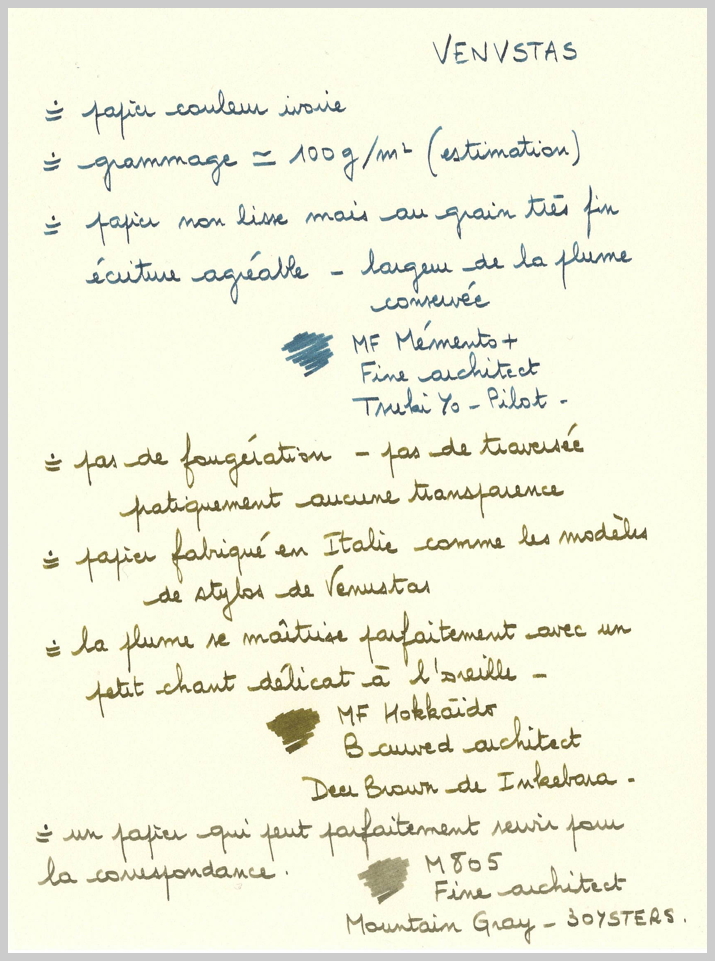 VENVSTAS
÷ papier couleur ivoire
÷ grammage ≃ 100g/m² (estimation)
÷ papier non lisse mais au grain très fin
écriture agréable - largeur de la plume
conservée
MF Mémento+
Fine architect
Tsuki Yo - Pilot -
÷ pas de fougération - pas de traversée
patiquement aucune transparence
÷ papier fabriqué en Italie comme les modèles
de stylos de Venustas
÷ la plume se maîtrise parfaitement avec un
petit chant délicat à l'oreille -
MF Hokkaïdo
B curved architect
Deer Brown de Inkebara -
÷ un papier qui peut parfaitement servir pour
la correspondance.
M805
Fine architect
Mountain Gray - 3OYSTERS.